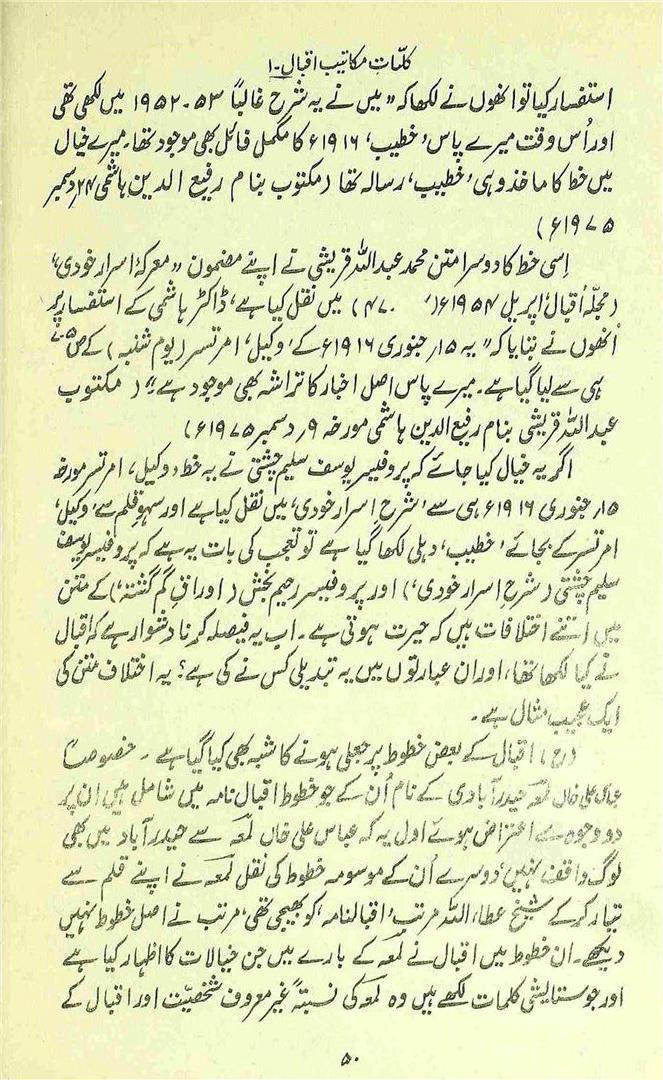 کلیات مکاتیب اقبال۔۱
استفسار کیا تو انھوں نے لکھا کہ "میں نے یہ شرح غالباً ۵۳۔۱۹۵۲ میں لکھی تھی
اور اُس وقت میرے پاس 'خطیب' ۱۹۱۶ء کا مکمل فائل بھی موجود تھا۔ میرے خیال
میں خط کا ماخذ وہی 'خطیب' رسالہ تھا (مکتوب بنام رفیع الدین ہاشمی ۲۴ دسمبر
۱۹۷۵ء)
اِسی خط کا دوسرا متن محمد عبداللہ قریشی نے اپنے مضمون "معرکۂ اسرارِ خودی"
(مجلّہ اقبال اپریل ۱۹۵۴ء، ۴۷۰) میں نقل کیا ہے، ڈاکٹر ہاشمی کے استفسار پر
اُنھوں نے بتایا کہ "یہ ۱۵؍ جنوری ۱۹۱۶ء کے 'وکیل' امرتسر (یوم شنبہ) کے ص ۵۔۷
ہی سے لیا گیا ہے۔ میرے پاس اصل اخبار کا تراشہ بھی موجود ہے" (مکتوب
عبداللہ قریشی بنام رفیع الدین ہاشمی مورخہ ۹؍ دسمبر ۱۹۷۵ء)
اگر یہ خیال کیا جائے کہ پروفیسر یوسف سلیم چشتی نے یہ خط 'وکیل' امرتسر مورخہ
۱۵؍ جنوری ۱۹۱۶ء ہی سے 'شرح اسرار خودی' میں نقل کیا ہے اور سہوِ قلم سے 'وکیل'
امرتسر کے بجائے 'خطیب' دہلی لکھا گیا ہے تو تعجب کی بات یہ ہے کہ پروفیسر یوسف
سلیم چشتی (شرح اسرار خودی) اور پروفیسر رحیم بخش (اوراقِ گم گشتہ) کے متن
میں اتنے اختلافات ہیں کہ حیرت ہوتی ہے۔ اب یہ فیصلہ کرنا دشوار ہے کہ اقبال
نے کیا لکھا تھا، اور ان عبارتوں میں یہ تبدیلی کس نے کی ہے؟ یہ اختلاف متن کی
ایک عجیب مثال ہے۔
(ج) اقبال کے بعض خطوط پر جعلی ہونے کا شبہ بھی کیا گیا ہے۔ خصوصاً
عباس علی خاں لمعہ حیدرآبادی کے نام اُن کے جو خطوط اقبال نامہ میں شامل ہیں ان پر
دو وجوہ سے اعتراض ہوئے اول یہ کہ عباس علی خاں لمعہ سے حیدرآباد میں بھی
لوگ واقف نہیں، دوسرے اُن کے موسومہ خطوط کی نقل لمعہ نے اپنے قلم سے
تیار کر کے شیخ عطاء اللہ مرتب 'اقبالنامہ' کو بھیجی تھی، مرتب نے اصل خطوط نہیں
دیکھے۔ ان خطوط میں اقبال نے لمعہ کے بارے میں جن خیالات کا اظہار کیا ہے
اور جو ستایشی کلمات لکھے ہیں وہ لمعہ کی نسبتہً غیر معروف شخصیّت اور اقبال کے
۵۰